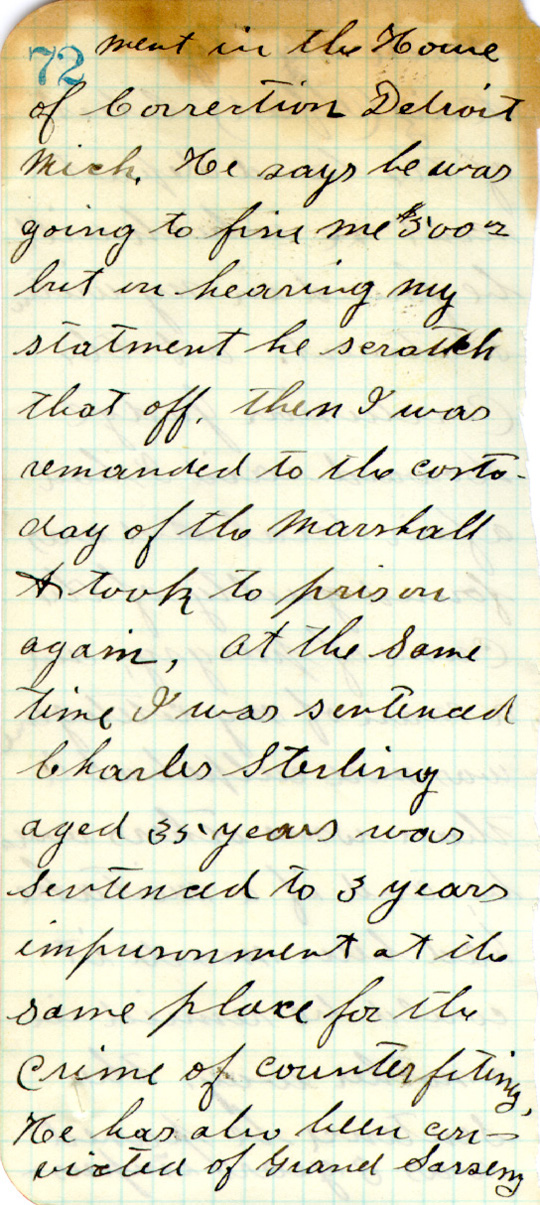 72 ment in the House
of Correction Detroit
Mich. He says he was
going to fine me $500 00
but on hearing my
statment he scratch
that off. then I was
remanded to the custo-
day of the Marshall
& took to prison
again, at the same
time I was sentenced
Charles Sterling
aged 35 years was
sentenced to 3 years
imprisonment at the
same place for the
crime of counterfiting,
He has also been con-
victed of Grand Larseny